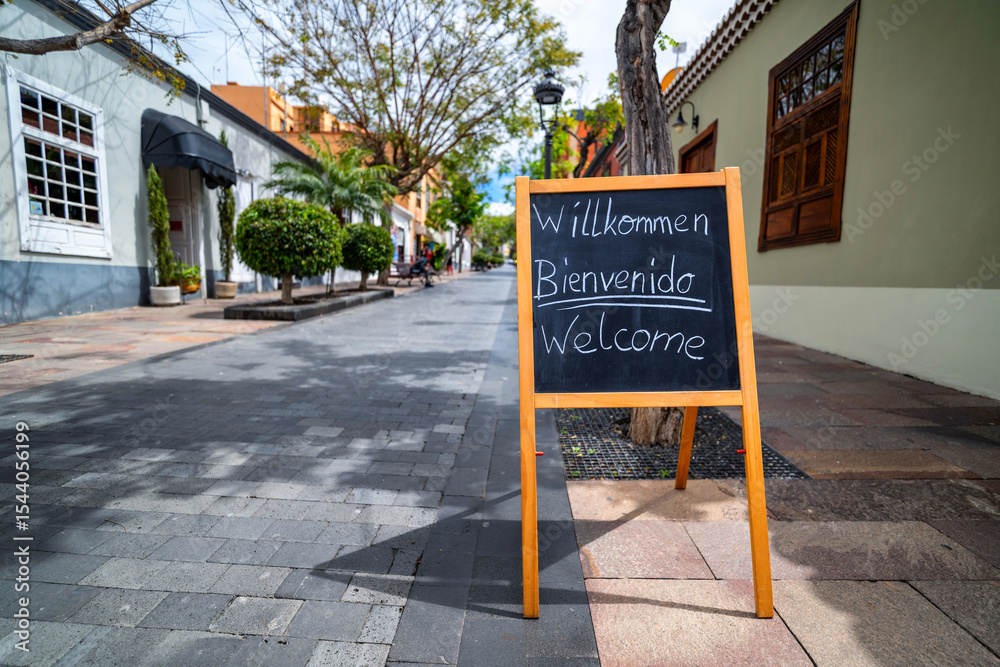 Willkommen
Bienvenido
Welcome
Adobe Stock | #1544056199
Adobe Stock